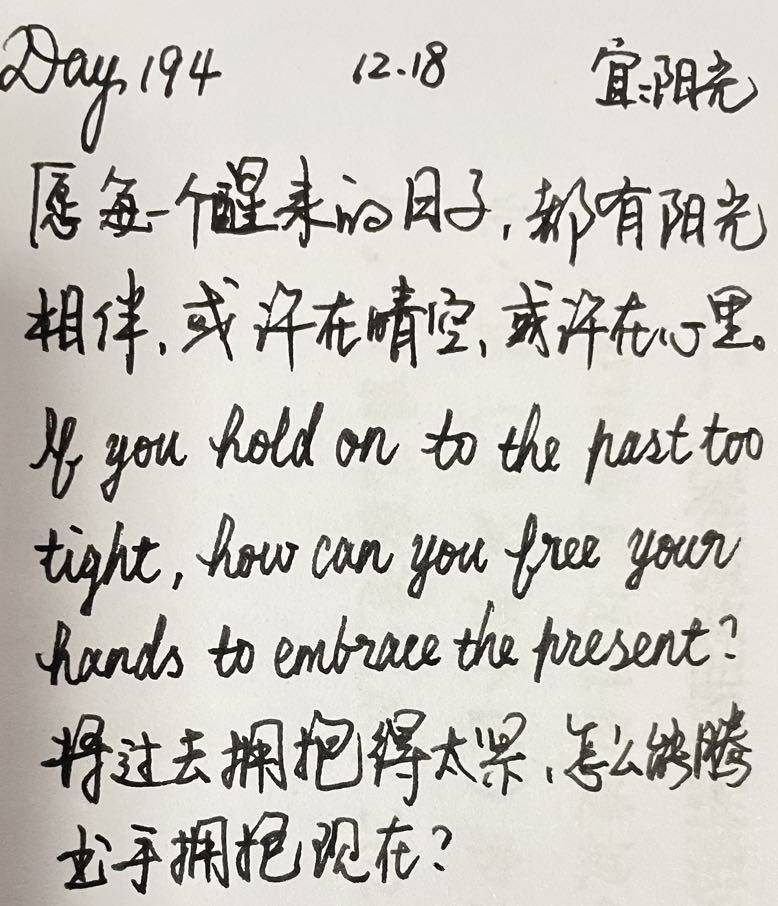 Day 194 12.18 宜:阳光
愿每一个醒来的日子,都有阳光
相伴,或许在晴空,或许在心里。
If you hold on to the past too
tight, how can you free your
hands to embrace the present?
将过去拥抱得太紧,怎么能腾
出手拥抱现在?